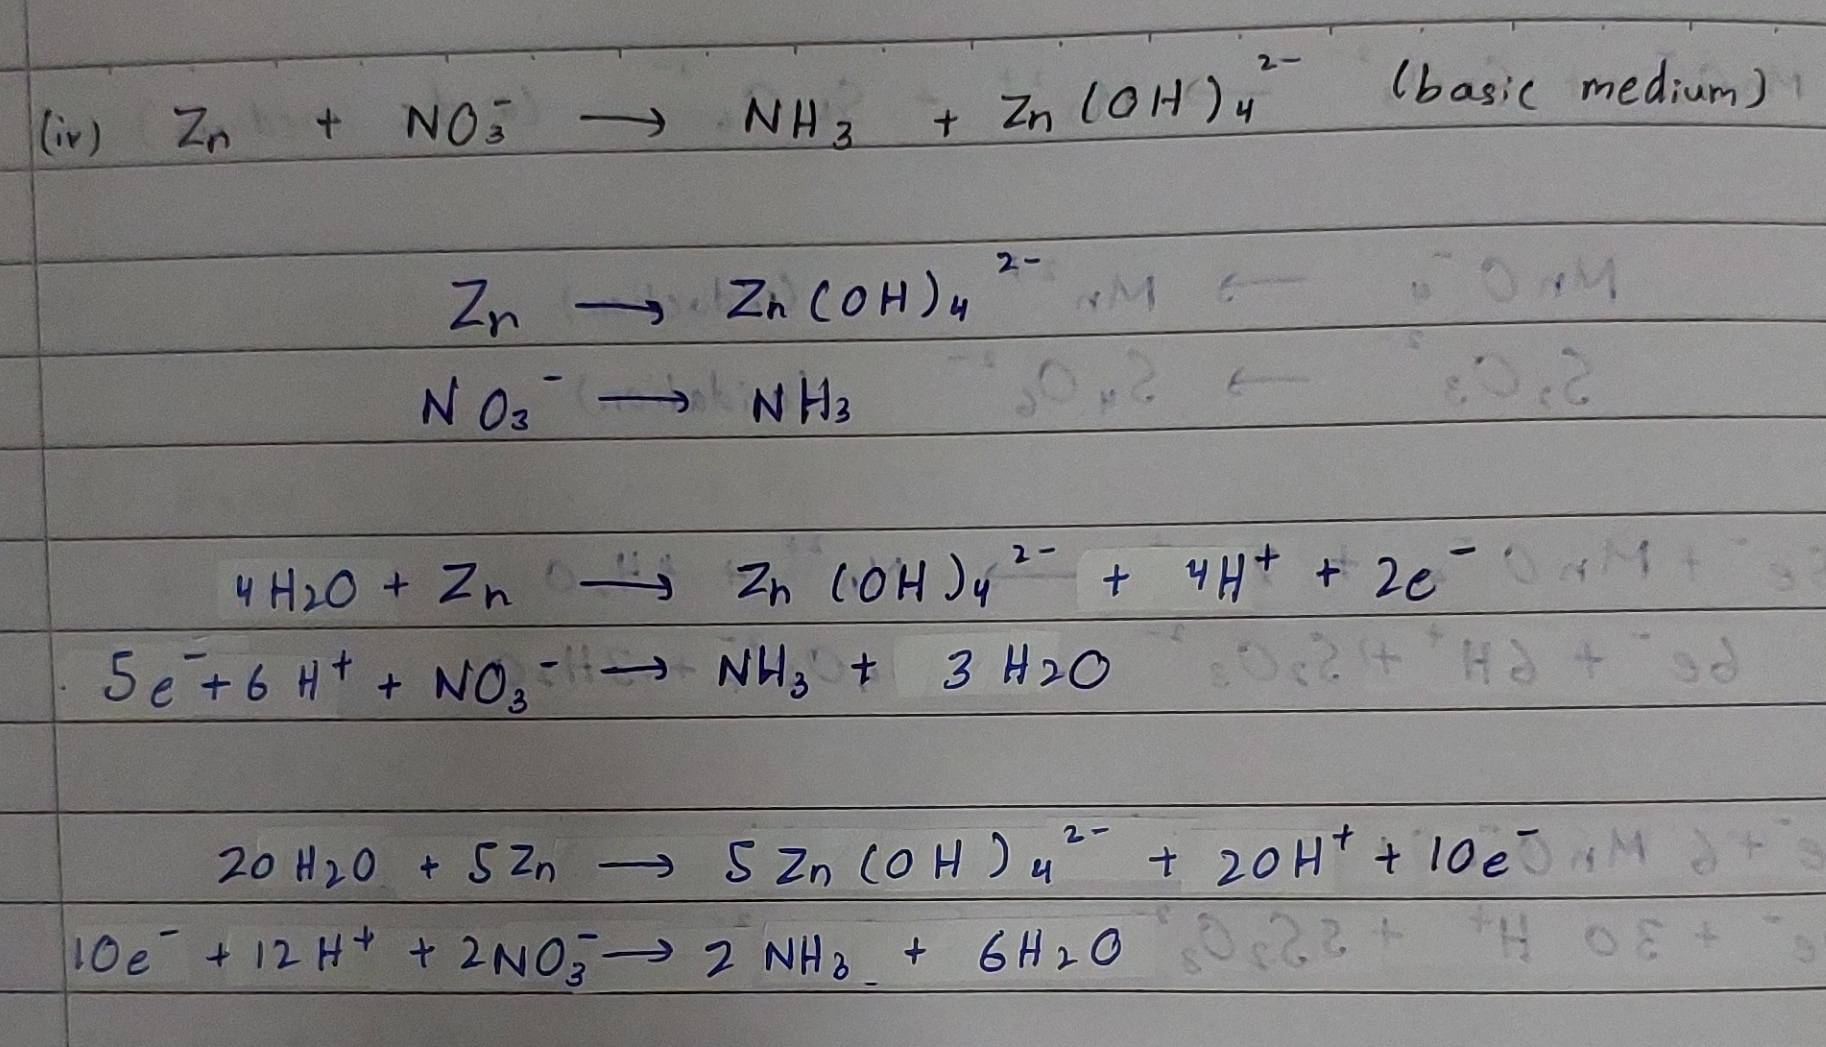 (iv) Zn + NO₃⁻ → NH₃ + Zn(OH)₄²⁻ (basic medium)
Zn → Zn(OH)₄²⁻
NO₃⁻ → NH₃
4H₂O + Zn → Zn(OH)₄²⁻ + 4H⁺ + 2e⁻
5e⁻ + 6H⁺ + NO₃⁻ → NH₃ + 3H₂O
20H₂O + 5Zn → 5Zn(OH)₄²⁻ + 20H⁺ + 10e⁻
10e⁻ + 12H⁺ + 2NO₃⁻ → 2NH₃ + 6H₂O